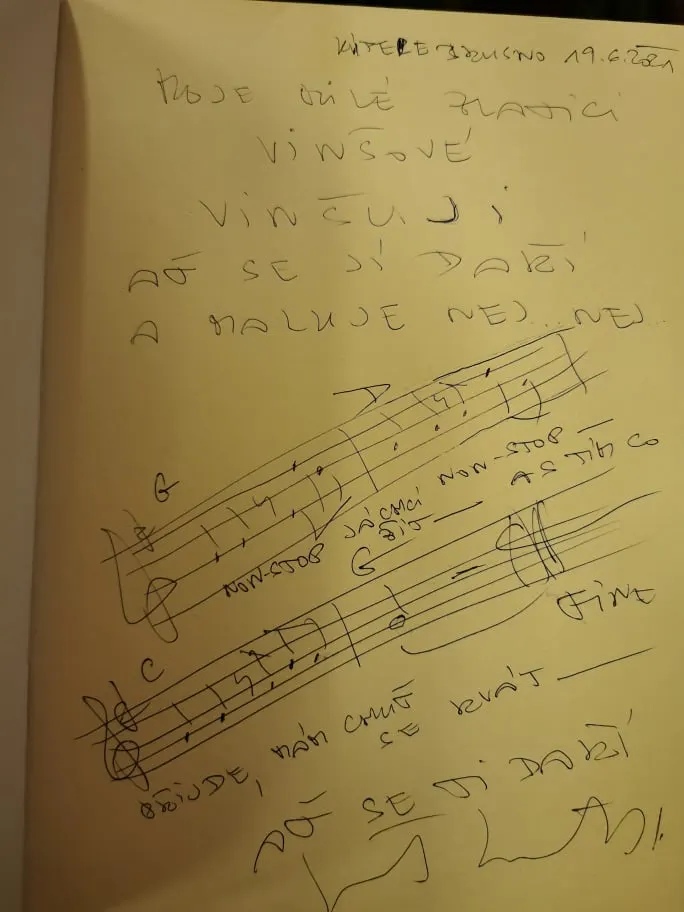 19.6.2021
MOJE MILÉ ZLATÍČI
VINŠOVÉ
VINŠUJI
AŤ SE JÍ DAŘÍ
A MALUJE NEJ...NEJ..
G D
NON-STOP JÁ CHCI NON-STOP
ŽÍT A S TÍM CO
G
C
FINE
PŘIJDE, MÁM CHUŤ
SE RVÁT
AŤ SE JI DAŘÍ